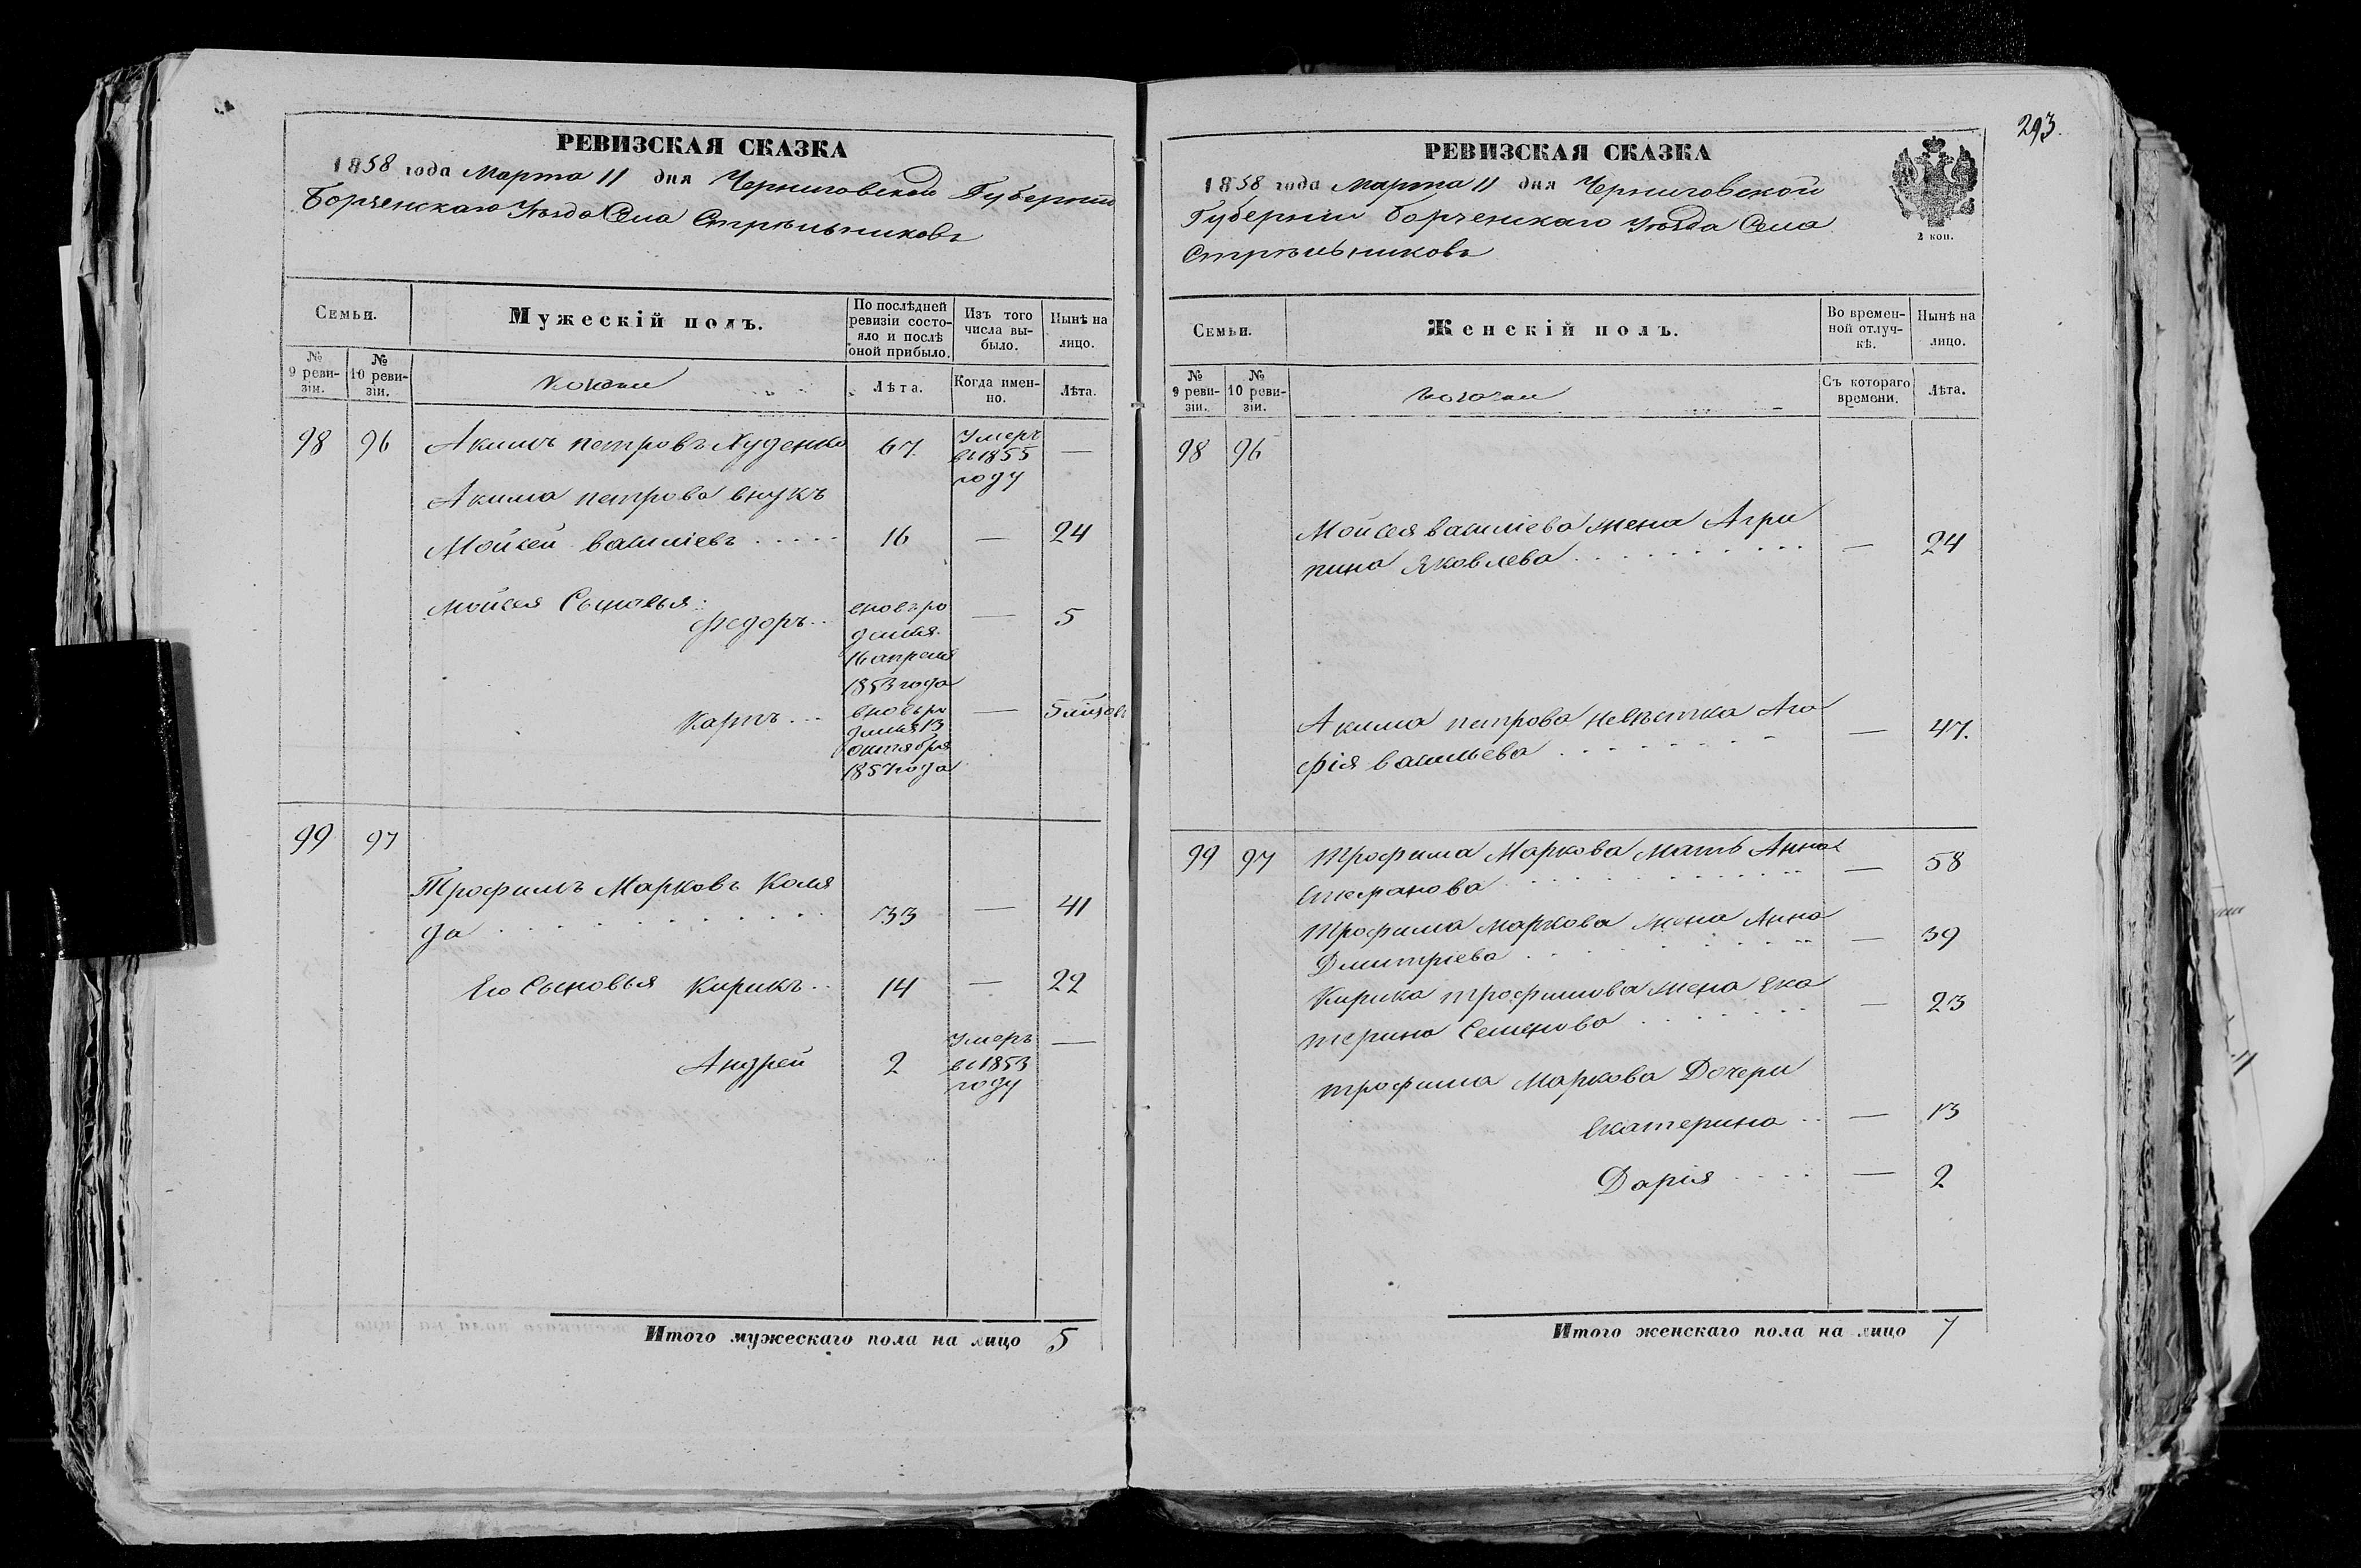 293.
РЕВИЗСКАЯ СКАЗКА
1858 года Марта 11 дня Черниговской Губерніи
Борзенскаго Уѣзда Села Стрѣльниковъ
Семьи.
Мужескій полъ.
По послѣдней ревизіи состо-
яло и послѣ
оной прибыло.
Изъ того
числа вы-
было.
Нынѣ на
лицо.
№
9 реви-
зіи.
№
10 реви-
зіи.
Козаки
Лѣта.
Когда имен-
но.
Лѣта.
98 96 Акимъ петровъ Худенко 67. Умеръ
въ 1855
году —
Акима петрова внукъ
Мойсей василіевъ ..... 16 — 24
Мойсея Сыновья:
Федоръ.. вновь ро
дился
16 апреля
1853 года — 5
Карпъ... вновь ро
дился 13
октября
1857 года — 5 мѣсяцовъ
99 97
Трофимъ Марковъ Коля
да 33 — 41
Его Сыновья Кирикъ.. 14 — 22
Андрей 2 Умеръ
въ 1853
году —
Итого мужескаго пола на лицо 5
РЕВИЗСКАЯ СКАЗКА
1858 года Марта 11 дня Черниговской
Губерніи Борзенскаго Уѣзда Села
Стрѣльниковъ
2 коп.
Семьи.
Женскій полъ.
Во времен-
ной отлуч-
кѣ.
Нынѣ на
лицо.
№
9 реви-
зіи.
№
10 реви-
зіи.
козачки
Съ котораго
времени.
Лѣта.
98 96
Мойсея василіева жена Агри
пина Яковлева — 24
Акима петрова невѣстка Ага
фія васильева — 47.
99 97 Трофима Маркова мать Анна
Стефанова — 58
Трофима маркова жена Анна
Дмитріева — 39
Кирика трофимова жена Ека
терина Семенова — 23
трофима Маркова Дочери
Екатерина .. — 13
Дарія .... — 2
Итого женскаго пола на лицо 7